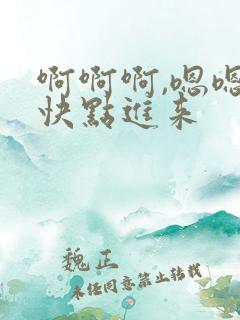 啊啊啊,嗯嗯
快點進来
魏正
未任同意禁止转载